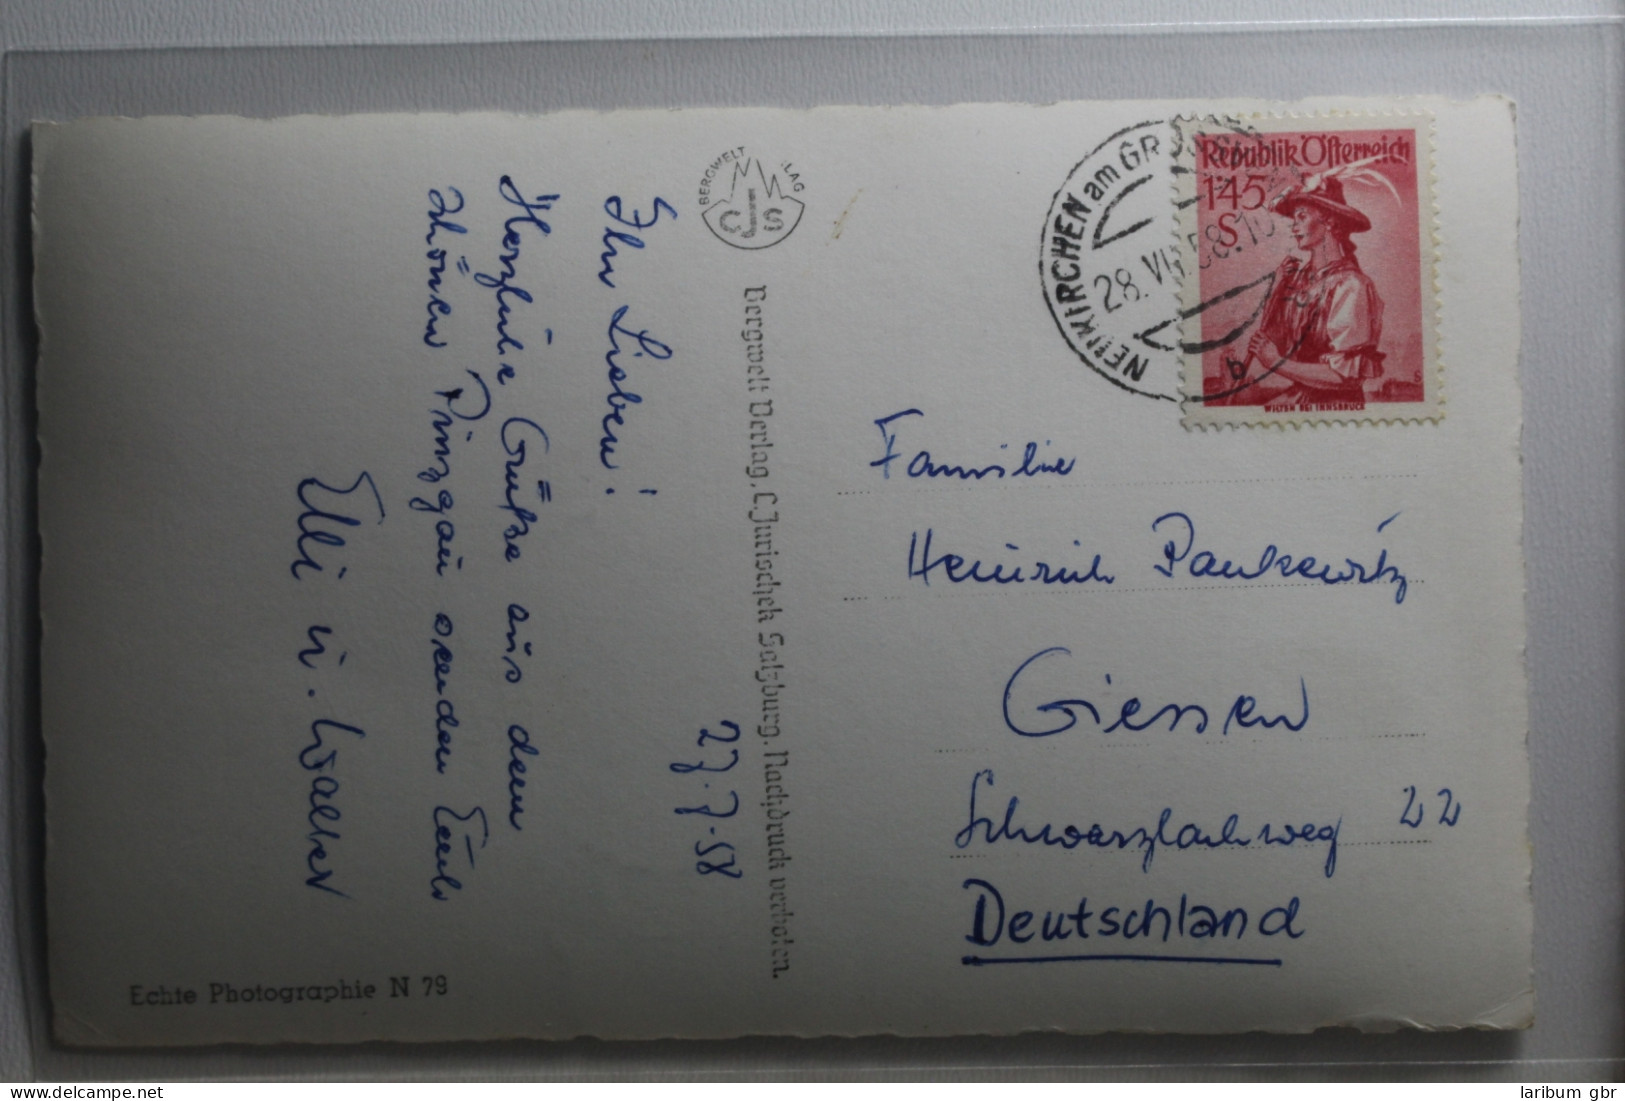 27.7.58
Ihr Lieben!
Herzliche Grüße aus dem
schönen Pinzgau senden Euch
Elli u. Walter
BERGWELT VERLAG
CJS
Bergwelt Verlag, C. Jurischek Salzburg. Nachdruck verboten.
Echte Photographie N 79
NEUKIRCHEN am GR
28. VII. 58. 10
b
Republik Österreich
1.45
S
WILTEN BEI INNSBRUCK
Familie
Heinrich Pankewitz
Giessen
Schwarzlachweg 22
Deutschland
delcampe.net
laribum gbr